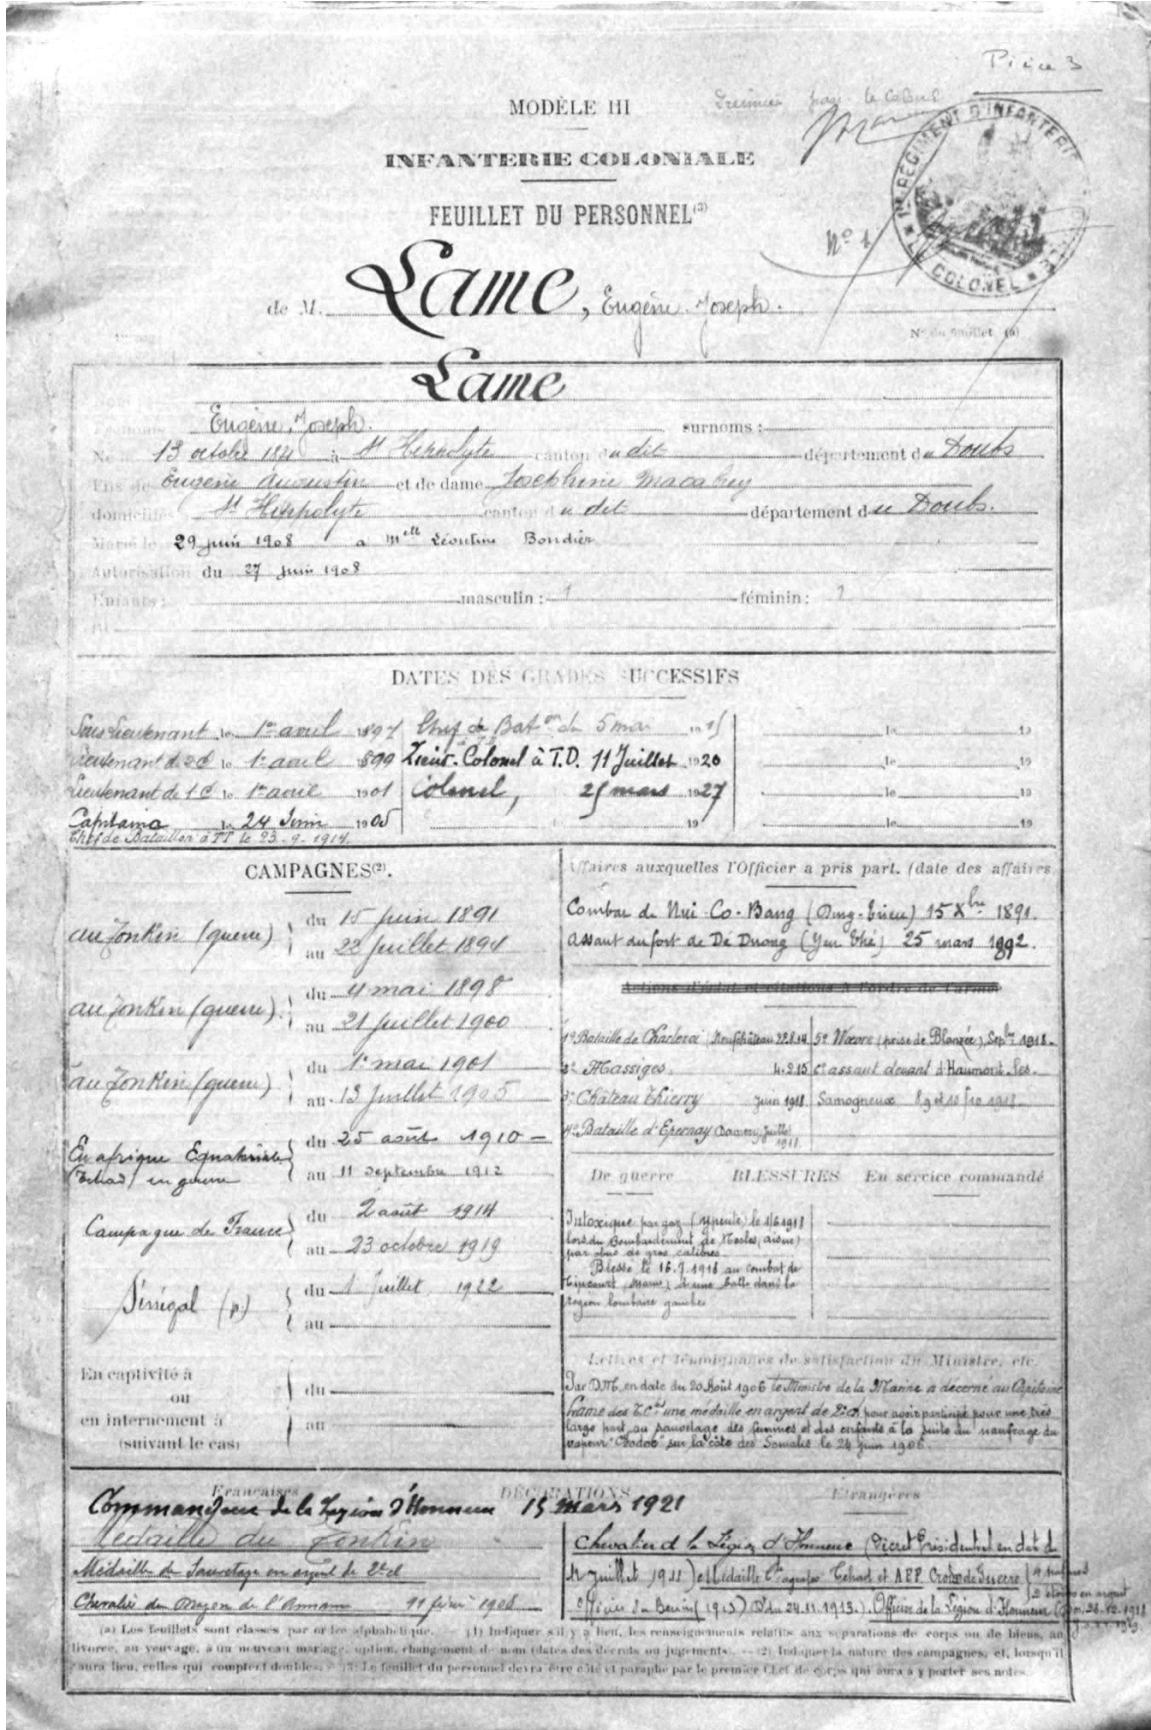 Pièce 3
MODÈLE III
INFANTERIE COLONIALE
FEUILLET DU PERSONNEL(3)
1er RÉGIMENT D'INFANTERIE
★ LE COLONEL ★
No 1
de M. Lame, Eugène Joseph.
No du feuillet (a)
Lame
Eugène Joseph. surnoms :
Né 13 octobre à St Hippolyte canton du dit département du Doubs
Fils de Eugène Augustin et de dame Joséphine Macabrey
domiciliés St Hippolyte canton du dit département du Doubs.
Marié le 29 juin 1908 à Melle Léontine Bondier
Autorisation du 27 juin 1908
Enfants : masculin : 1 féminin :
DATES DES GRADES SUCCESSIFS
Sous Lieutenant le 1er avril 1897 Chef de Baton du 5 mai 19 le 19
Lieutenant de 2e C le 1er avril 1899 Lieut-Colonel à T.D. 11 Juillet 1920 le 19
Lieutenant de 1e C le 1er avril 1901 Colonel, 25 mars 1927 le 19
Capitaine le 24 Juin 1905 19 le 19
Chef de Bataillon à TT le 23-9-1914.
CAMPAGNES(2).
au Tonkin (guerre) du 15 juin 1891
au 22 Juillet 1894
au Tonkin (guerre) du 4 mai 1898
au 21 Juillet 1900
au Tonkin (guerre) du 1er mai 1901
au 13 Juillet 1905
En afrique Equatoriale (Tchad) en guerre du 25 août 1910
au 11 septembre 1912
Campagne de France du 2 août 1914
au 23 octobre 1919
Sénégal (p.) du 1 Juillet 1922
au
En captivité à
ou
en internement à
(suivant le cas)
du
au
Affaires auxquelles l'Officier a pris part. (date des affaires
Combat de Nui-Co-Bang (Dong-Trieu) 15 Xbre 1891.
Assaut du fort de Dé Duong (Yen Thé) 25 mars 1892.
Actions d'éclat et citations à l'ordre de l'armée
1o Bataille de Charleroi (Neufchâteau 22.8.14
2o Massiges.
3o Château Thierry juin 1918
4o Bataille d'Epernay Juillet 1918.
5o Woevre (prise de Blanzée) Sepbre 1918.
6o assaut devant d'Haumont les
Samogneux 8 9 et 10/10 1918.
BLESSURES
De guerre En service commandé
Intoxiqué par gaz (ypérite) le 1/6 1918
lors du Bombardement de Nesles, aisne)
par obus de gros calibres
Blessé le 16.7.1918 au combat de
Tincourt, Marne, d'une balle dans la
région lombaire gauche
Lettres et témoignages de satisfaction du Ministre, etc.
Par DM en date du 20 Août 1906 le Ministre de la Marine a décerné au Capitaine
Lame des T.Cales une médaille en argent de 2e cl pour avoir participé pour une très
large part au sauvetage des femmes et des enfants à la suite du naufrage du
vapeur "Chodoc" sur la côte des Somalis le 24 juin 1905.
DÉCORATIONS
Françaises
Commandeur de la Légion d'Honneur 15 mars 1921
Médaille du Tonkin
Médaille de Sauvetage en argent de 2e cl
Chevalier du Dragon de l'Annam 11 février 1908
Étrangères
Chevalier de la Légion d'Honneur (Décret Présidentiel en date du
Juillet 1911) et Médaille Cle agrafes Tchad et AEF. Croix de Guerre
Officier du Bénin (1913) D du 24.11.1913). Officier de la Légion d'Honneur 26.12.1918
(a) Les feuillets sont classés par ordre alphabétique. — (1) Indiquer s'il y a lieu, les renseignements relatifs aux séparations de corps ou de biens, au
divorce, au veuvage, à un nouveau mariage, option, changement de nom (dates des décrets ou jugements. — (2) Indiquer la nature des campagnes, et, lorsqu'il
y aura lieu, celles qui comptent doubles. (3) Le feuillet du personnel devra être coté et paraphé par le premier Chef de corps qui aura à y porter ses notes.